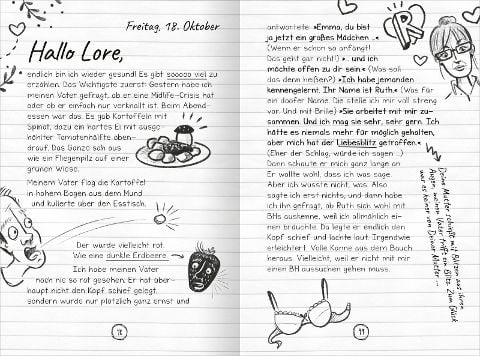 Freitag, 18. Oktober
Hallo Lore,
endlich bin ich wieder gesund! Es gibt sooooo viel zu
erzählen. Das Wichtigste zuerst: Gestern habe ich
meinen Vater gefragt, ob er eine Midlife-Crisis hat
oder ob er einfach nur verknallt ist. Beim Abend-
essen war das. Es gab Kartoffeln mit
Spinat, dazu ein hartes Ei mit ausge-
höhlter Tomatenhälfte oben-
drauf. Das Ganze sah aus
wie ein Fliegenpilz auf einer
grünen Wiese.
Meinem Vater flog die Kartoffel
in hohem Bogen aus dem Mund
und kullerte über den Esstisch.
Der wurde vielleicht rot.
Wie eine dunkle Erdbeere.
Ich habe meinen Vater
noch nie so rot gesehen. Er hat über-
haupt nicht den Kopf schief gelegt,
sondern wurde nur plötzlich ganz ernst und
antwortete: »Emma, du bist
ja jetzt ein großes Mädchen ...«
(Wenn er schon so anfängt!
Das geht gar nicht!) »... und ich
möchte offen zu dir sein.« (Was soll
das denn heißen?) »Ich habe jemanden
kennengelernt. Ihr Name ist Ruth.« (Was für
ein doofer Name. Die stelle ich mir voll streng
vor. Und mit Brille.) »Sie arbeitet mit mir zu-
sammen. Und ich mag sie sehr, sehr gern. Ich
hätte es niemals mehr für möglich gehalten,
aber mich hat der Liebesblitz getroffen.«
(Eher der Schlag, würde ich sagen ...)
Dann schaute er mich ganz lange an.
Er wollte wohl, dass ich was sage.
Aber ich wusste nicht, was. Also
sagte ich erst nichts, und dann habe
ich ihn gefragt, ob Ruth sich wohl mit
BHs auskenne, weil ich allmählich ei-
nen bräuchte. Da legte er endlich den
Kopf schief und lachte laut. Irgendwie
erleichtert. Volle Kanne aus dem Bauch
heraus. Vielleicht, weil er nicht mit mir
einen BH aussuchen gehen muss.
R
Deine Mutter schimpft mit Blitzen aus ihren
Augen, meinen Vater trifft ein Blitz. Zum Glück
war es keiner von Deiner Mutter ...